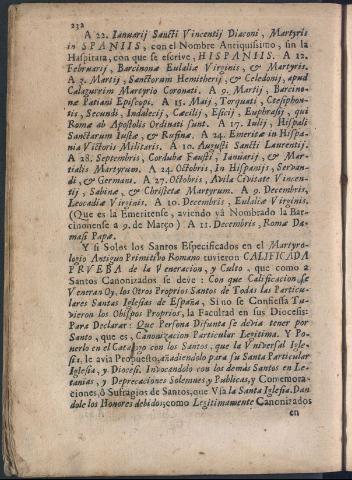 232
A 22. Ianuarij Sancti Vincentij Diaconi, Martyris
in SPANIIS, con el Nombre Antiquissimo, sin la
Haspirata, con que se escrive, HISPANIIS. A 12.
Februarij, Barcinonæ Eulaliæ Virginis, & Martyris.
A 3. Martij, Sanctorum Hemitherij, & Celedonij, apud
Calagurrim Martyrio Coronati. A 9. Martij, Barcino-
næ Patiani Episcopi. A 15. Maij, Torquati, Ctesiphon-
tis, Secundi, Indalecij, Cæcilij, Esicij, Euphrasij, qui
Romæ ab Apostolis Ordinati sunt. A 17. Iulij, Hispali
Sanctarum Iustæ, & Rufinæ. A 24. Emeritæ in Hispa-
nia Victoris Militaris. A 10. Augusti Sancti Laurentij.
A 28. Septembris, Cordubæ Fausti, Ianuarij, & Mar-
tialis Martyrum. A 24. Octobris, in Hispanijs, Servan-
di, & Germani. A 27. Octobris, Avila Civitate Vincen-
tij, Sabinæ, & Christetæ Martyrum. A 9. Decembris,
Leocadiæ Virginis. A 10. Decembris, Eulaliæ Virginis.
(Que es la Emeritense, aviendo yá Nombrado la Bar-
cinonense à 9. de Março) A 11. Decembris, Romæ Da-
masi Papæ.
Y si Solos los Santos Especificados en el Martyro-
logio Antiguo Primitivo Romano tuvieron CALIFICADA
PRVEBA de la Veneracion, y Culto, que como a
Santos Canonizados se deve: Con que Calificacion, se
Veneran Oy, los Otros Proprios Santos de Todas las Particu-
lares Santas Iglesias de España, Si no se Confiessa Tu-
vieron los Obispos Proprios, la Facultad en sus Diocesis:
Para Declarar: Que Persona Difunta se devia tener por
Santo, que es, Canonizacion Particular Legitima. Y Po-
nerlo en el Catalogo con los Santos, que la Vniversal Igle-
sia, le avia Propuesto, añadiendolo para su Santa Particular
Iglesia, y Diocesi. Invocandolo con los demás Santos en Le-
tanias, y Deprecaciones Solemnes, y Publicas, y Comemora-
ciones, ò Sufragios de Santos, que Vsa la Santa Iglesia. Dan
dole los Honores debidos; como Legitimamente Canonizados
en